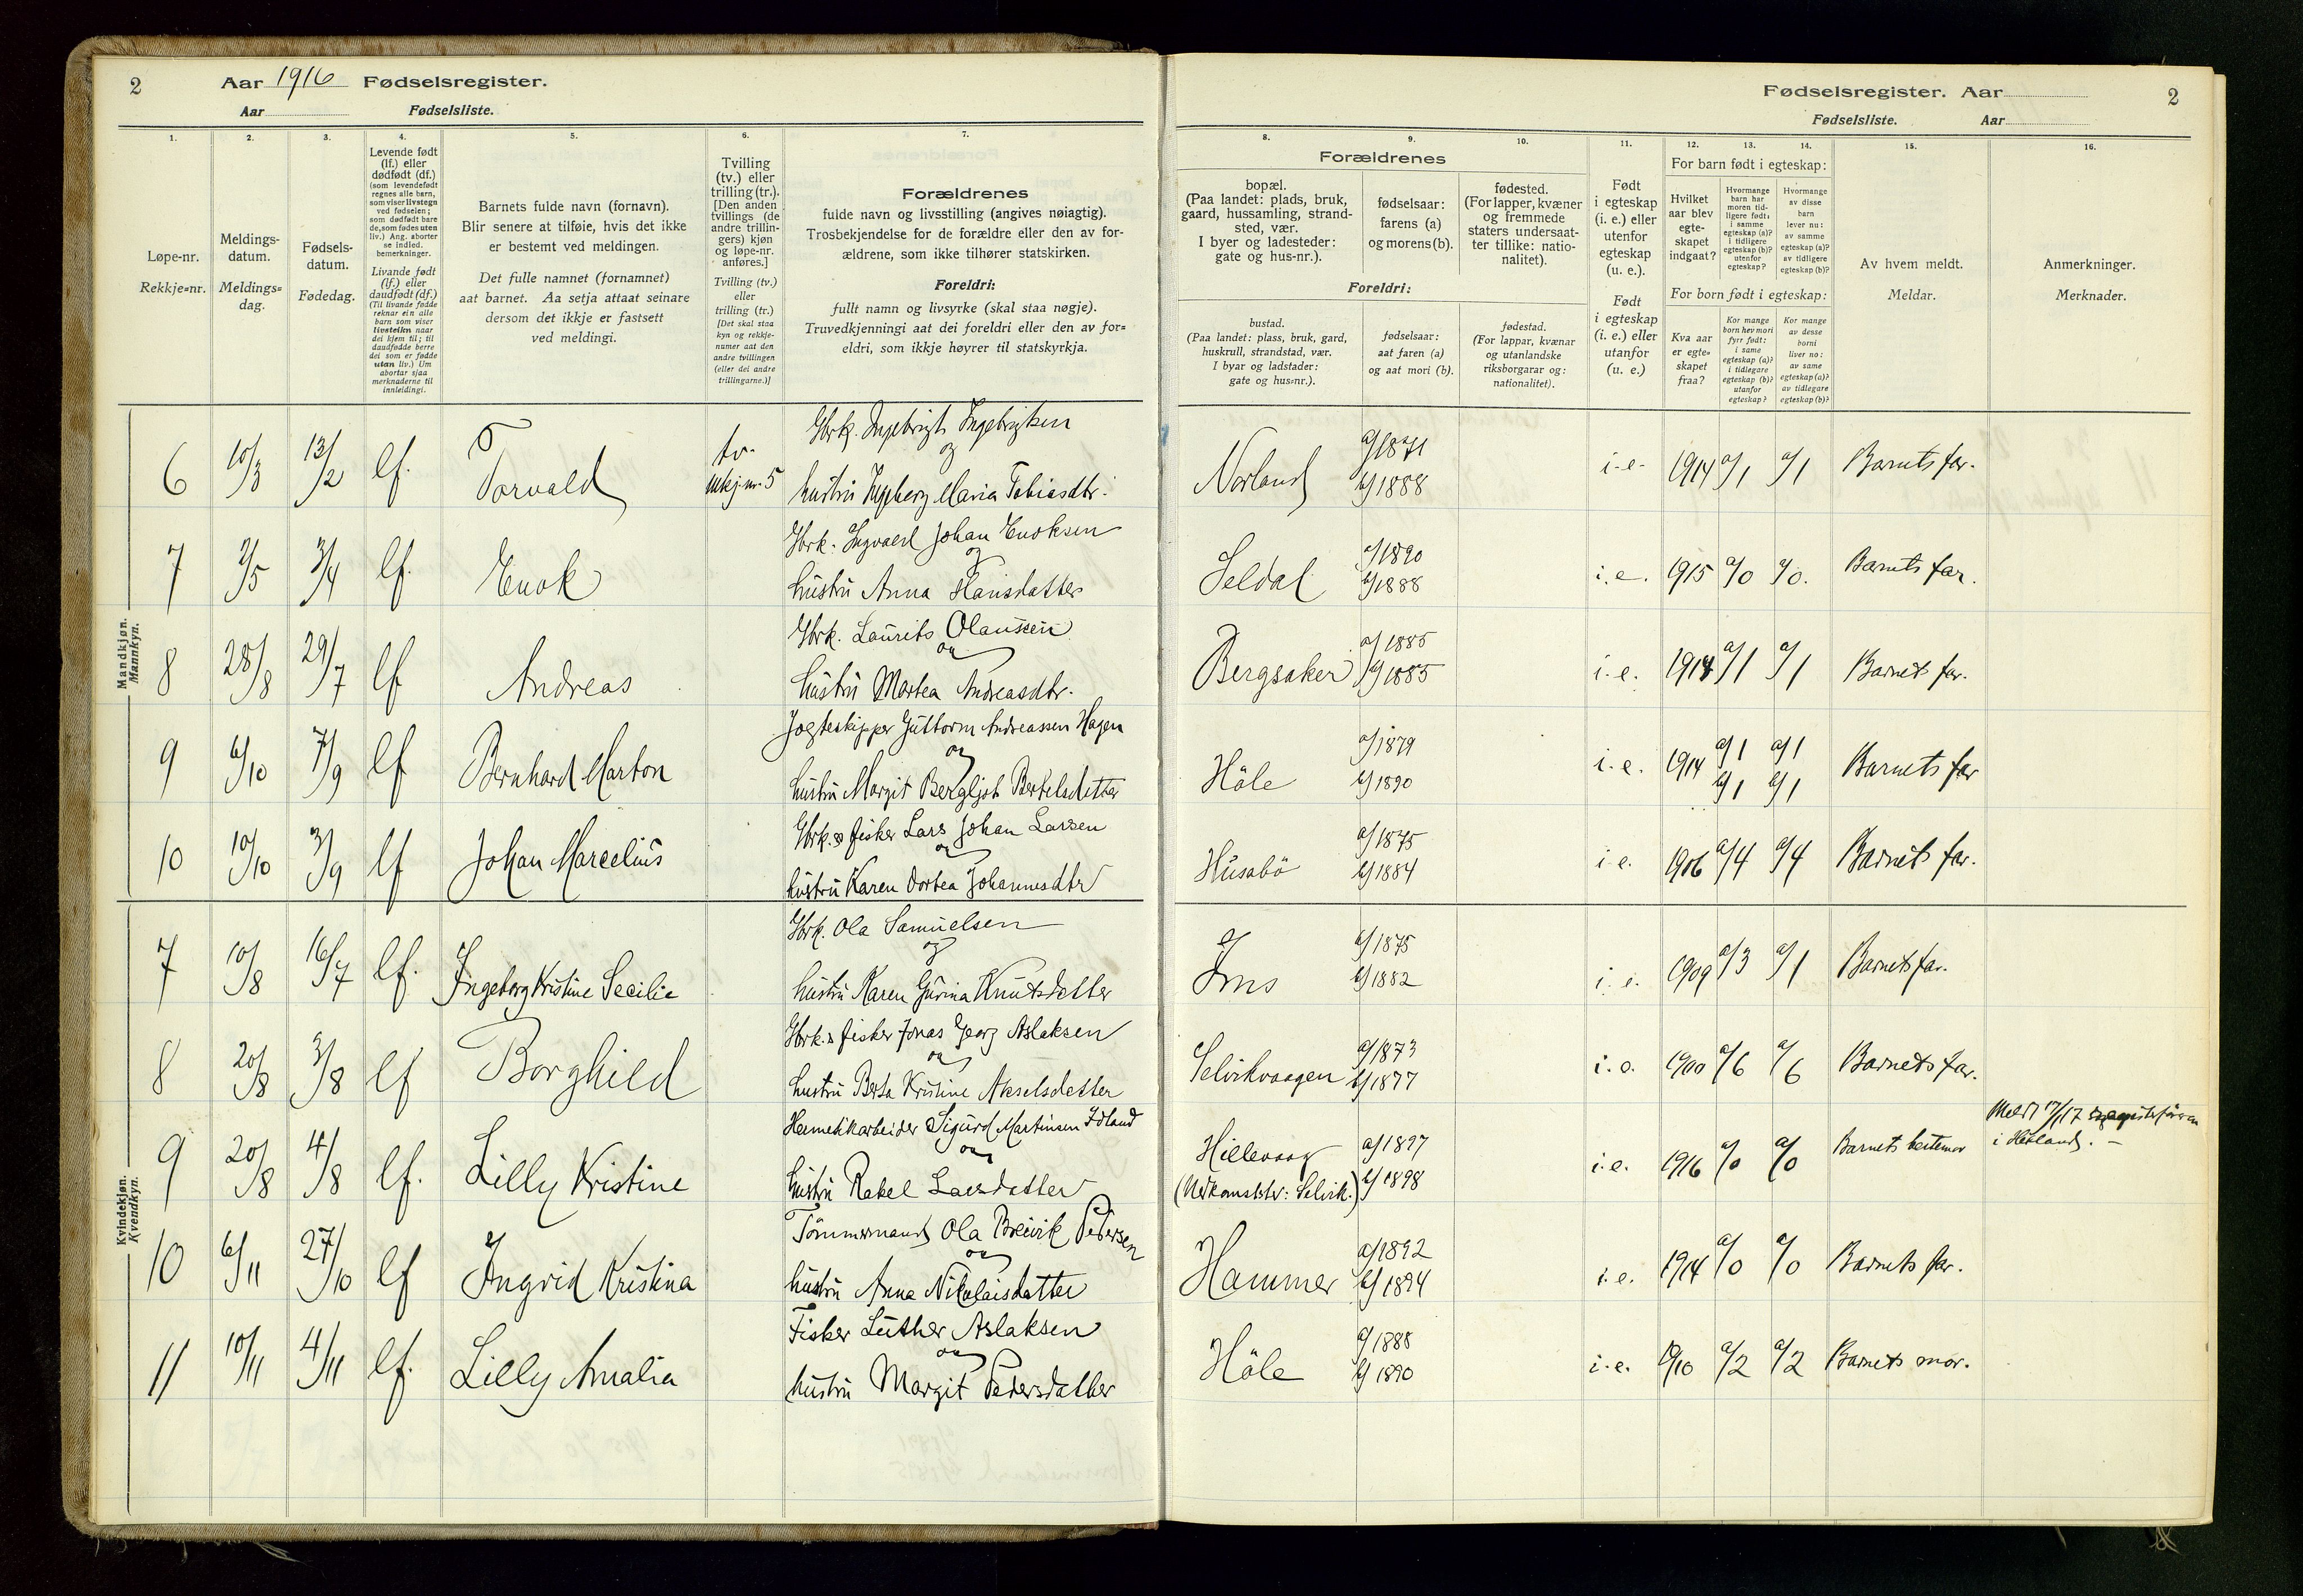 2 Aar 1916 Fødselsregister.
Aar Fødselsliste.
Fødselsregister. Aar 2
Fødselsliste. Aar
1. 2. 3. 4. 5. 6. 7. 8. 9. 10. 11. 12. 13. 14. 15. 16.
Løpe-nr.
Rekkje=nr.
Meldings-
datum.
Meldings=
dag.
Fødsels-
datum.
Fødedag.
Levende født
(lf.) eller
dødfødt (df.)
(som levendefødt
regnes alle barn,
som viser livstegn
ved fødselen;
som dødfødt bare
de, som fødes uten
liv.) Ang. aborter
se indled.
bemerkninger.
Livande født
(lf.) eller
daudfødt (df.)
(Til livande fødde
reknar ein alle
barn som viser
livsteikn naar
dei kjem til; til
daudfødde berre
dei som er fødde
utan liv.) Um
abortar sjaa
merknaderne til
innleidingi.
Barnets fulde navn (fornavn).
Blir senere at tilføie, hvis det ikke
er bestemt ved meldingen.
Det fulle namnet (fornamnet)
aat barnet. Aa setja attaat seinare
dersom det ikkje er fastsett
ved meldingi.
Tvilling
(tv.) eller
trilling (tr.).
[Den anden
tvillings (de
andre trillin-
gers) kjøn
og løpe-nr.
anføres.]
Tvilling (tv.)
eller
trilling (tr.)
[Det skal staa
kyn og rekkje-
numer aat den
andre tvillingen
(eller dei andre
trillingarne.)]
Forældrenes
fulde navn og livsstilling (angives nøiagtig).
Trosbekjendelse for de forældre eller den av for-
ældrene, som ikke tilhører statskirken.
Foreldri:
fullt namn og livsyrke (skal staa nøgje).
Truvedkjenningi aat dei foreldri eller den av for=
eldri, som ikkje høyrer til statskyrkja.
Forældrenes
bopæl.
(Paa landet: plads, bruk,
gaard, hussamling, strand-
sted, vær.
I byer og ladesteder:
gate og hus-nr.).
fødselsaar:
farens (a)
og morens (b).
fødested.
(For lapper, kvæner
og fremmede
staters undersaat-
ter tillike: natio-
nalitet).
Foreldri:
bustad.
(Paa landet: plass, bruk, gard,
huskrull, strandstad, vær.
I byar og ladstader:
gate og hus=nr.).
fødselsaar:
aat faren (a)
og aat mori (b).
fødestad.
(For lappar, kvænar
og utanlandske
riksborgarar og:
nationalitet).
Født
i egteskap
(i. e.) eller
utenfor
egteskap
(u. e.).
Født
i egteskap
(i. e.) eller
utanfor
(u. e.)
For barn født i egteskap:
Hvilket
aar blev
egte-
skapet
indgaat?
Hvormange
barn har
moren tid-
ligere født:
i samme
egteskap (a)?
i tidligere
egteskap (b)?
utenfor
egteskap?
Hvormange
av disse
barn
lever nu:
av samme
egteskap (a)?
av tidligere
egteskap (b)?
For born født i egteskap:
Kva aar
er egte=
skapet
fraa?
Kor mange
born hev mori
fyrr født:
i same
egteskap (a)?
i tidlegare
egteskap (b)?
utanfor
egteskap?
Kor mange
av desse
borni
liver no:
av same
egteskap (a)?
av tidlegare
egteskap (b)?
Av hvem meldt.
Meldar.
Anmerkninger.
Merknader.
Mandkjøn.
Mannkyn.
6 10/3 13/2 lf. Torvald tv. rekkj.nr. 5 Gbrk. Ingebrigt Ingebrigtsen
og
hustru Ingeborg Maria Tobiasdtr. Norland a/1871 b/1888 i.e. 1914 a/1 a/1 Barnets far.
7 2/5 3/4 lf. Enok Gbrk. Ingvald Johan Enoksen
og
hustru Anna Hansdatter Seldal a/1890 b/1888 i.e. 1915 a/0 a/0. Barnets far.
8 28/8 29/7 lf Andreas Gbrk. Laurits Olaussen
og
hustru Martea Andreasdtr. Bergsaker a/1885 b/1885 i.e. 1914 a/1 a/1 Barnets far.
9 6/10 7/9 lf Bernhard Marton Jagteskipper Guttorm Andreassen Hagen
og
hustru Margit Bergljot Bertelsdatter Höle a/1879 b/1890 i.e. 1914 a/1 b/1 a/1 b/1 Barnets far
10 10/10 3/9 lf Johan Marcelius Gbrk. & fisker Lars Johan Larsen
og
hustru Karen Dortea Johannesdtr Husabö a/1875 b/1884 i.e. 1906 a/4 a/4 Barnets far.
Kvindekjøn.
Kvendkyn.
7 10/8 16/7 lf. Ingeborg Kristine Secilie Gbrk. Ola Samuelsen
og
hustru Karen Gurina Knutsdatter Ims a/1875 b/1882 i.e. 1909 a/3 a/1 Barnets far.
8 20/8 3/8 lf Borghild Gbrk. & fisker Jonas Georg Aslaksen
og
hustru Berta Kristine Akselsdatter Selvikvaagen a/1873 b/1877 i.e. 1900 a/6 a/6 Barnets far.
9 20/8 4/8 lf. Lilly Kristine Hermetikarbeider Sigurd Martinsen Idland
og
hustru Rakel Larsdatter Hillevaag
(Nedkomststr: Selvik.) a/1897 b/1898 i.e. 1916 a/0 a/0 Barnets bestemor Meldt
i Hetland.
10 6/11 27/10 lf Ingrid Kristina Tömmermand Ola Breivik Pedersen
og
hustru Anna Nikolaisdatter Hammer a/1892 b/1894 i.e. 1914 a/0 a/0 Barnets far.
11 10/11 4/11 lf. Lilly Amalia Fisker Luther Aslaksen
og
hustru Margit Pedersdatter Höle a/1888 b/1890 i.e. 1910 a/2 a/2 Barnets mor.